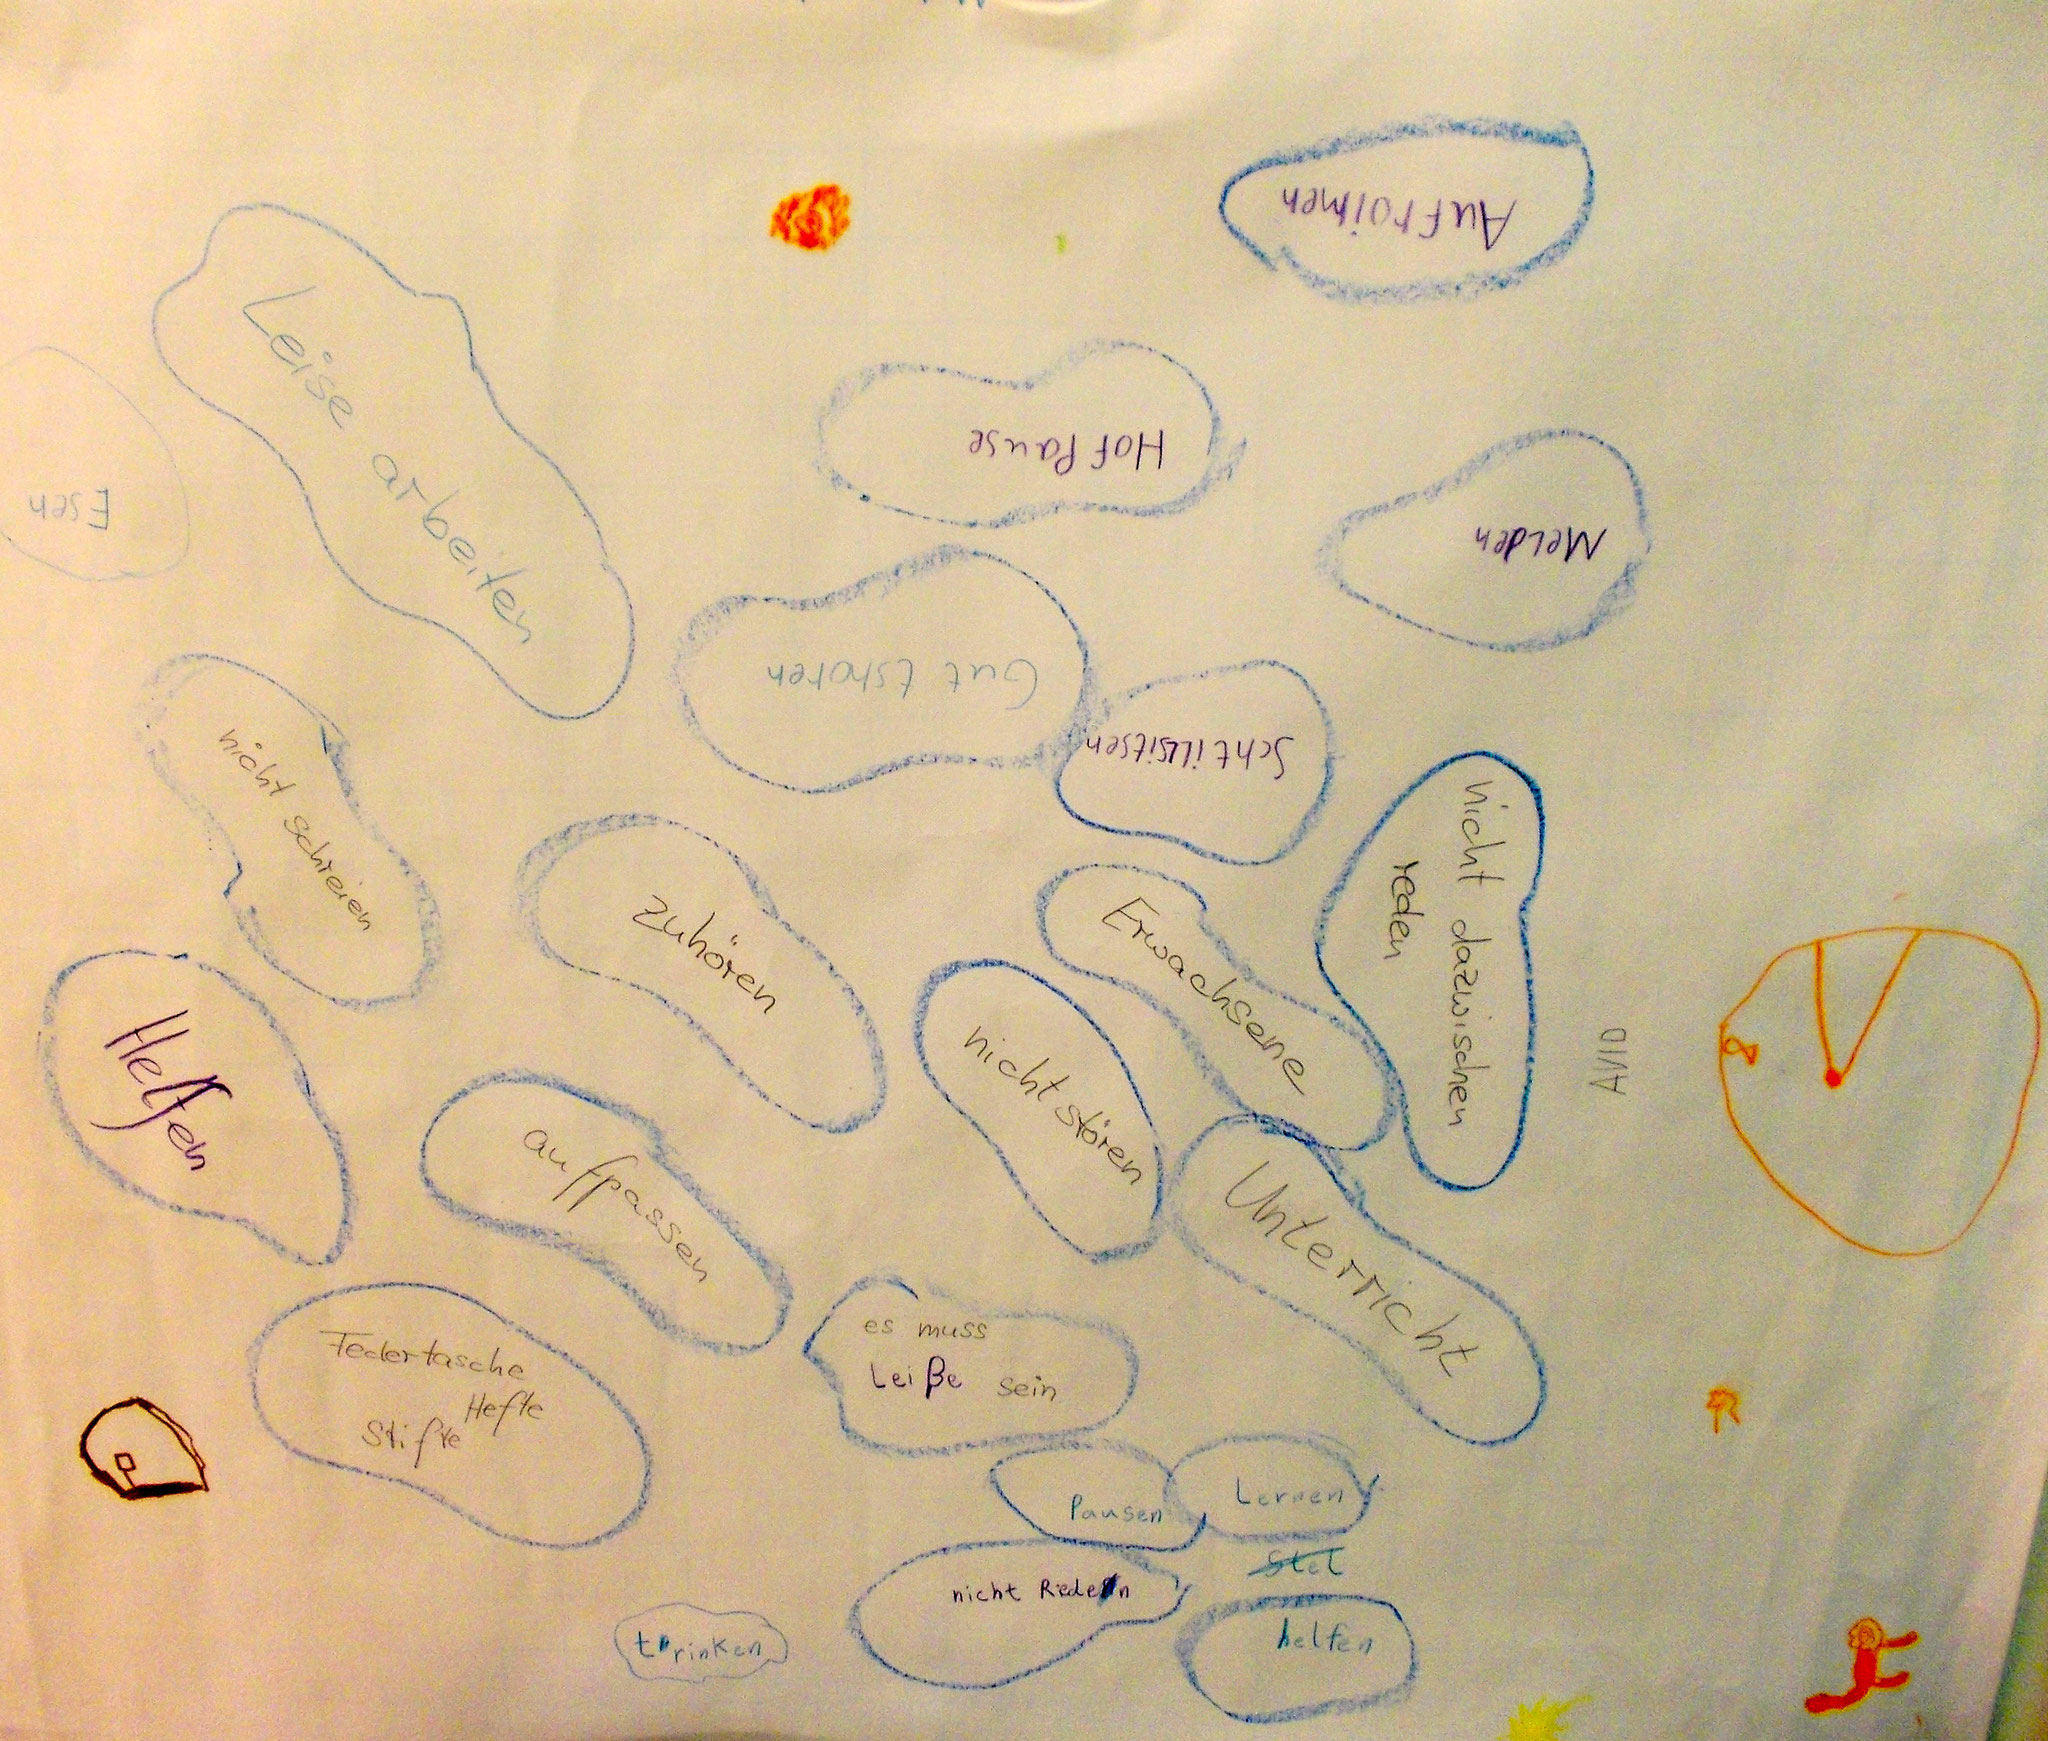 Aufroimen
Leise arbeiten
Hof Pause
Esen
Melden
Gut tshoren
Schtillsitsen
nicht schreien
nicht dazwischen
reden
zuhören
Erwachsene
nicht stören
Helfen
aufpassen
Unterricht
Federtasche
Hefte
Stifte
es muss
Leiße sein
Pausen
Lernen
stel
nicht Reden
trinken
helfen